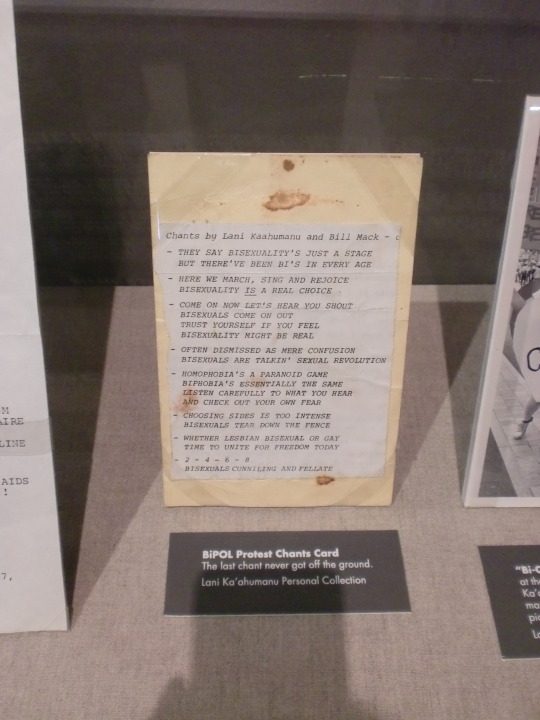 Chants by Lani Kaahumanu and Bill Mack - c
- THEY SAY BISEXUALITY'S JUST A STAGE
BUT THERE'VE BEEN BI'S IN EVERY AGE
- HERE WE MARCH, SING AND REJOICE
BISEXUALITY IS A REAL CHOICE
- COME ON NOW LET'S HEAR YOU SHOUT
BISEXUALS COME ON OUT
TRUST YOURSELF IF YOU FEEL
BISEXUALITY MIGHT BE REAL
- OFTEN DISMISSED AS MERE CONFUSION
BISEXUALS ARE TALKIN' SEXUAL REVOLUTION
- HOMOPHOBIA'S A PARANOID GAME
BIPHOBIA'S ESSENTIALLY THE SAME
LISTEN CAREFULLY TO WHAT YOU HEAR
AND CHECK OUT YOUR OWN FEAR
- CHOOSING SIDES IS TOO INTENSE
BISEXUALS TEAR DOWN THE FENCE
- WHETHER LESBIAN BISEXUAL OR GAY
TIME TO UNITE FOR FREEDOM TODAY
- 2 - 4 - 6 - 8
BISEXUALS CUNNILING AND FELLATE
BiPOL Protest Chants Card
The last chant never got off the ground.
Lani Ka'ahumanu Personal Collection
AIRE
LINE
AIDS
!
7,
"Bi-
at th
Ka'
ma
pi